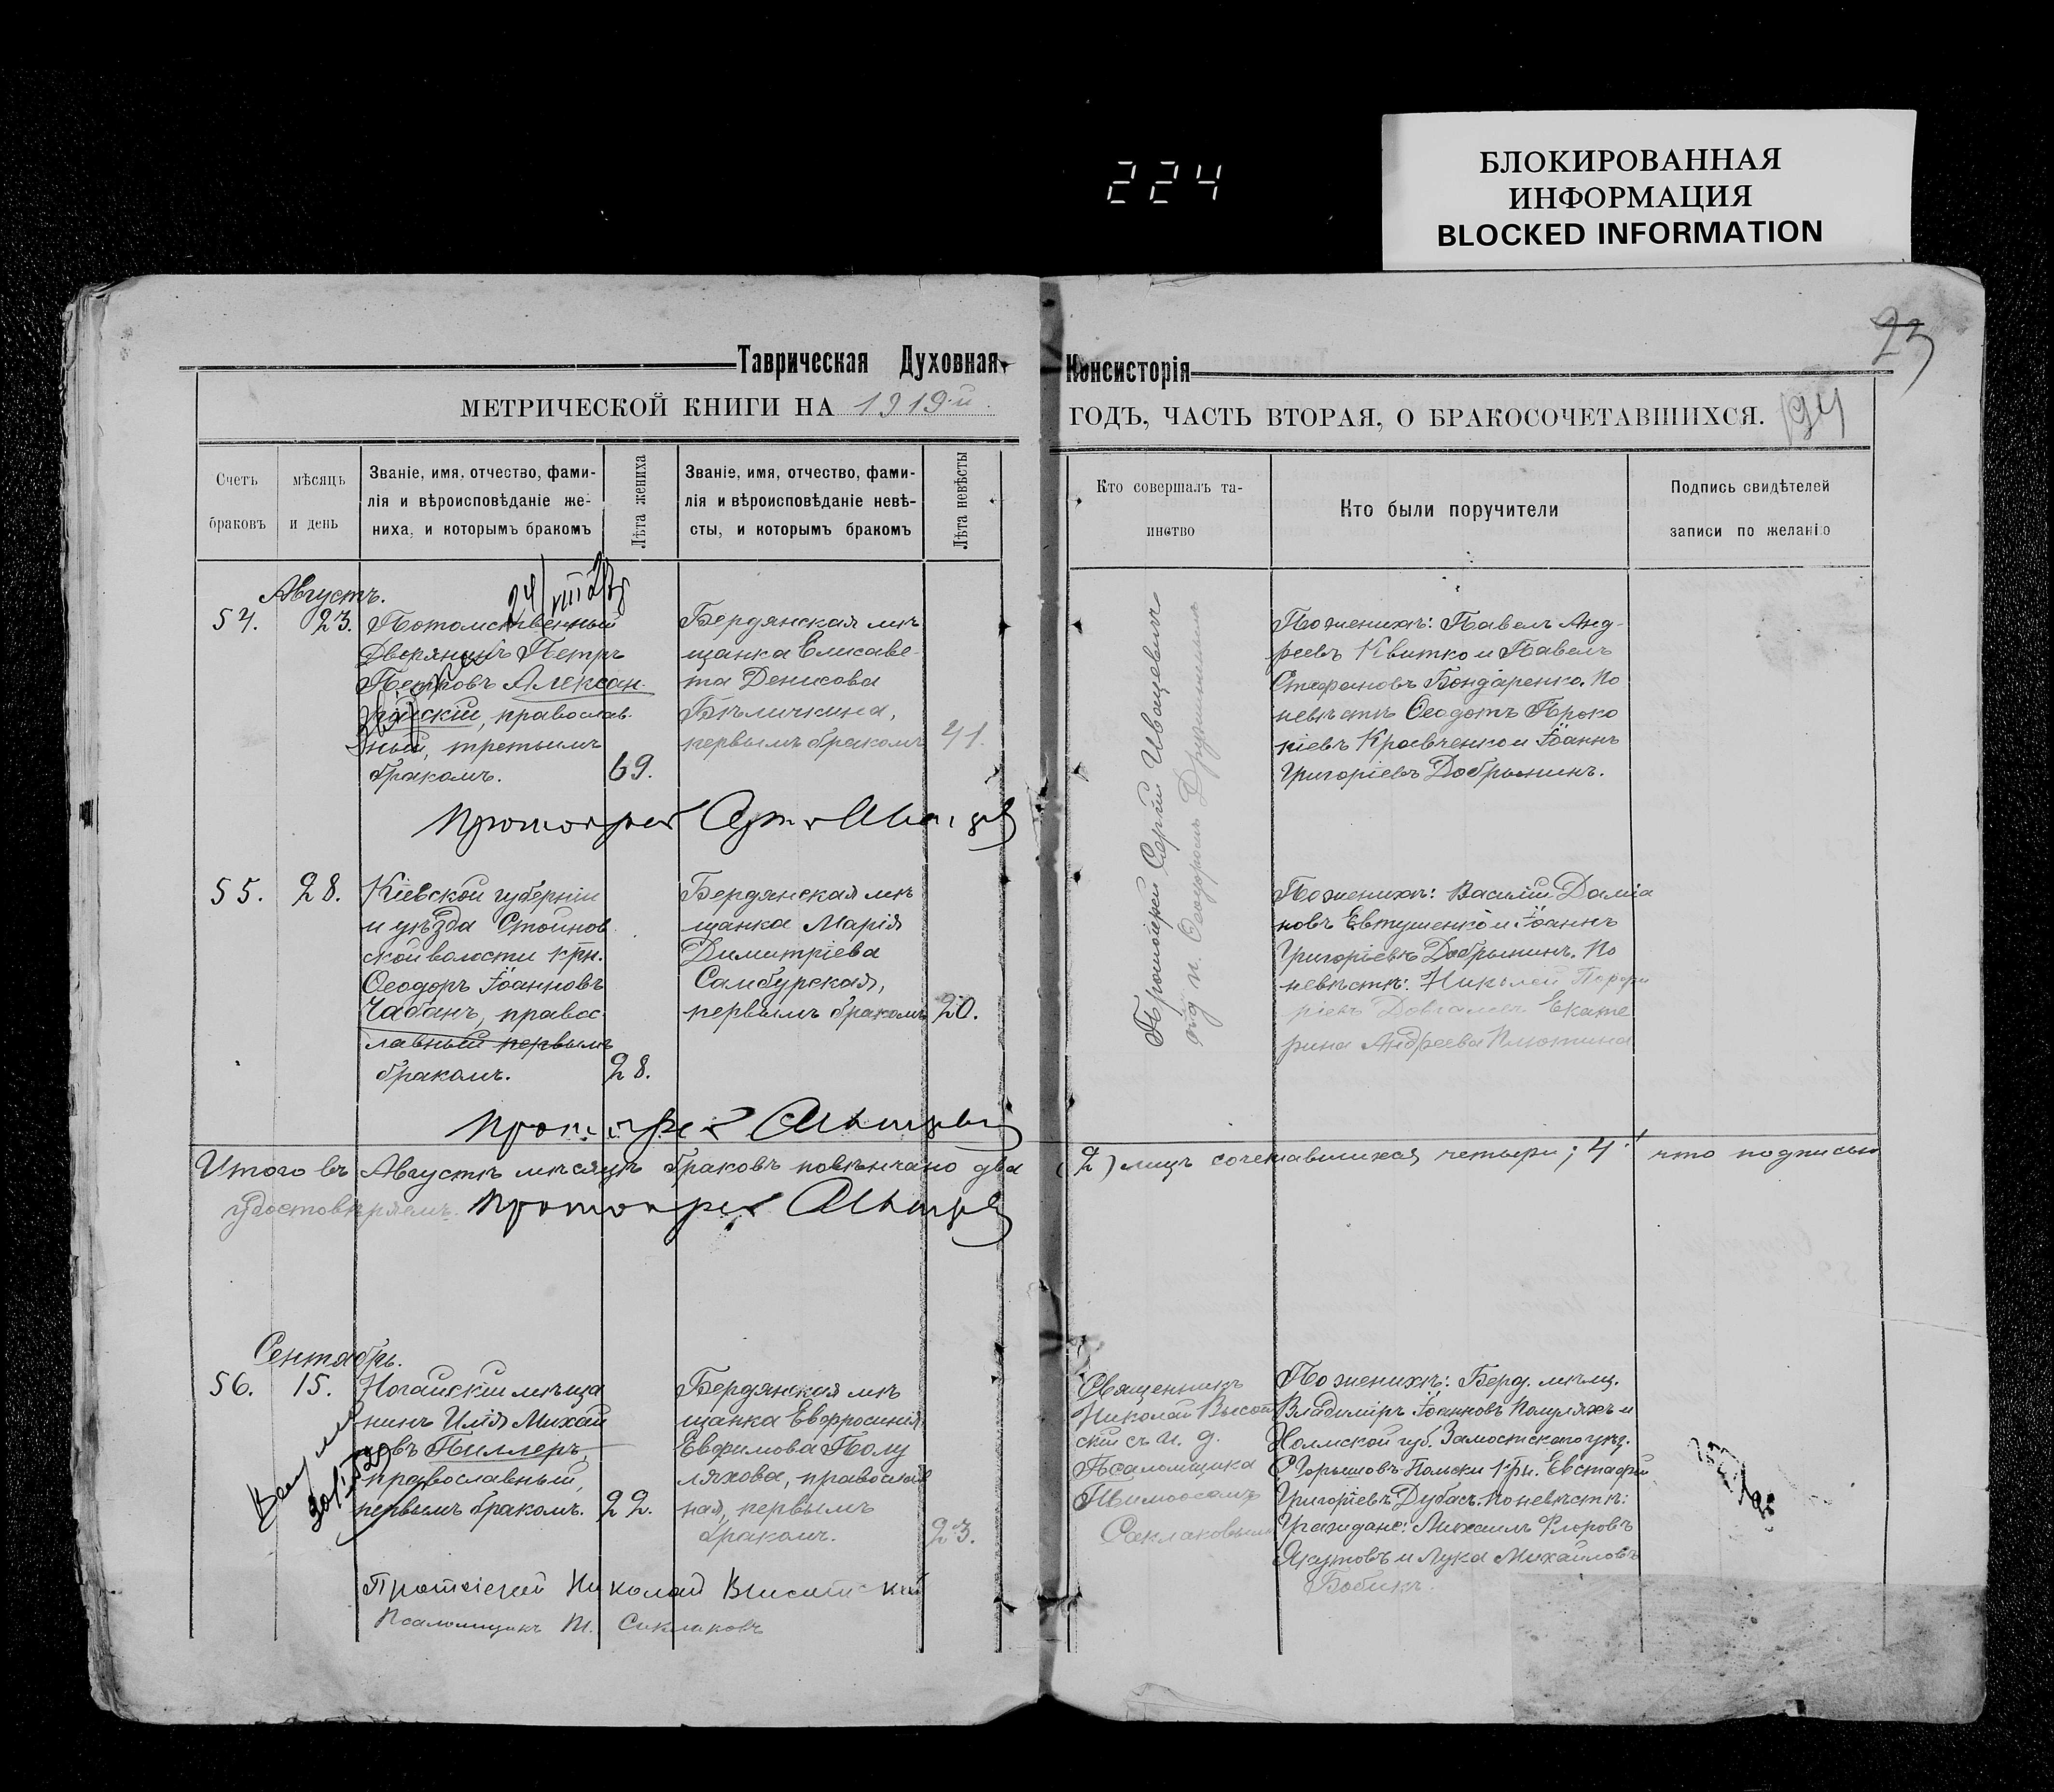 224
БЛОКИРОВАННАЯ
ИНФОРМАЦИЯ
BLOCKED INFORMATION
23
Таврическая Духовная Консисторія
МЕТРИЧЕСКОЙ КНИГИ НА 1919-й
ГОДЪ, ЧАСТЬ ВТОРАЯ, О БРАКОСОЧЕТАВШИХСЯ.
194
Счетъ
браковъ
мѣсяцъ
и день
Званіе, имя, отчество, фами-
лія и вѣроисповѣданіе же-
ниха, и которымъ бракомъ
Лѣта жениха
Званіе, имя, отчество, фами-
лія и вѣроисповѣданіе невѣ-
сты, и которымъ бракомъ
Лѣта невѣсты
Кто совершалъ та-
инство
Кто были поручители
Подпись свидѣтелей
записи по желанію
Августъ.
54.
23.
Потомственный
Дворянинъ Петръ
Петровъ Алексан-
дрійскій, православ-
ный, третьимъ
бракомъ.
69.
Бердянская мѣ
щанка Елисаве-
та Денисова
Бѣличкина,
первымъ бракомъ
41.
Протоіерей Сергій Иващевичъ
По женихѣ: Павелъ Анд-
реевъ Квитко и Павелъ
Стефановъ Бондаренко. По
невѣстѣ Ѳеодотъ Проко
піевъ Кравченко и Іоаннъ
Григоріевъ Добрынинъ.
Протоіерей
55.
28.
Кіевской губерніи
и уѣзда
ской волости крн.
Ѳеодоръ Іоанновъ
Чабанъ, правос-
лавный первымъ
бракомъ.
28.
Бердянская мѣ
щанка Марія
Димитріева
Самбурская,
первымъ бракомъ
20.
По женихѣ: Василій Даміа
новъ Евтушенко и Іоаннъ
Григоріевъ Добрынинъ. По
невѣстѣ: Николай Порфи
ріевъ Екате
рина Андреева
Протоіерей
Итого въ Августѣ мѣсяцѣ браковъ повѣнчано два (2) лицъ сочетавшихся четыре; 4. что подписью
удостовѣряемъ. Протоіерей
Сентябрь.
56.
15.
Ногайскій мѣща
нинъ Илія Михай
ловъ Пиллеръ,
православный,
первымъ бракомъ.
22.
Бердянская мѣ
щанка Евфросинія
Евфимова Полу
ляхова, православ
ная, первымъ
бракомъ.
23.
Священникъ
Николай Высот
скій съ и. д.
Псаломщика
Саклаковымъ
По женихѣ: Берд. мѣщ.
Владиміръ Іоанновъ Полуляхъ и
Холмской губ. Замостскаго уѣз.
крн. Евстафій
Григоріевъ Дубасъ. По невѣстѣ:
Граждане: Михаилъ Флоровъ
Якутовъ и Лука Михайловъ
Бобикъ.
Протоіерей Николай Высотскій
Псаломщикъ Саклаковъ